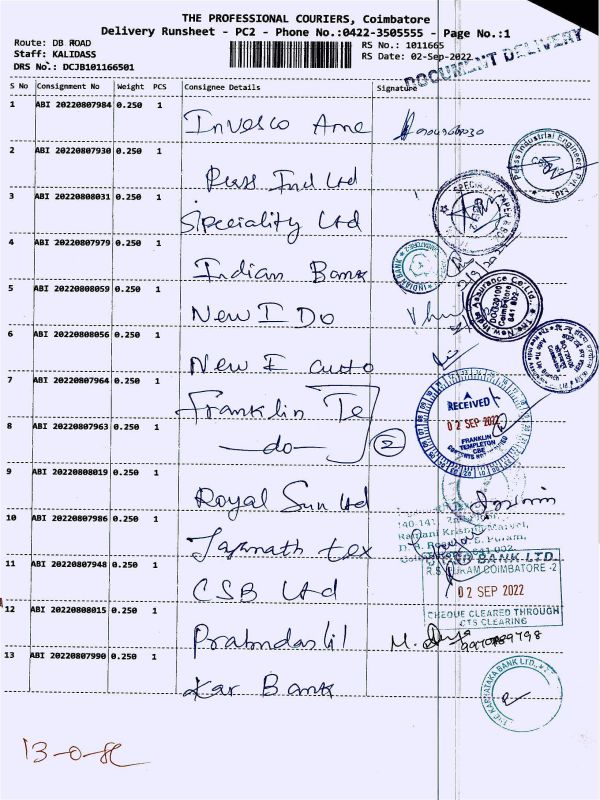 THE PROFESSIONAL COURIERS, Coimbatore
Delivery Runsheet - PC2 - Phone No.:0422-3505555 - Page No.:1
Route: DB ROAD
Staff: KALIDASS
DRS No.: DCJB101166501
RS No.: 1011665
RS Date: 02-Sep-2022
DOCUMENT DELIVERY
S No Consignment No Weight PCS Consignee Details Signature
1 ABI 20220807984 0.250 1 Invesco Ame
2 ABI 20220807930 0.250 1 Ind Ltd
3 ABI 20220808031 0.250 1 Speciality Ltd
4 ABI 20220807979 0.250 1 Indian Bank
5 ABI 20220808059 0.250 1 New I DO
6 ABI 20220808056 0.250 1 New I auto
7 ABI 20220807964 0.250 1 Franklin Te
8 ABI 20220807963 0.250 1 -do- 2
9 ABI 20220808019 0.250 1 Royal Sun Ltd
10 ABI 20220807986 0.250 1 tex
11 ABI 20220807948 0.250 1 CSB Ltd
12 ABI 20220808015 0.250 1
13 ABI 20220807990 0.250 1 Kar Bank
INDIAN BANK
The New India Assurance Co. Ltd.
Coimbatore
641 002
RECEIVED
02 SEP 2022
FRANKLIN
TEMPLETON
CBE
BANK LTD.
COIMBATORE -2
02 SEP 2022
CHEQUE CLEARED THROUGH
CTS CLEARING
THE KARNATAKA BANK LTD.